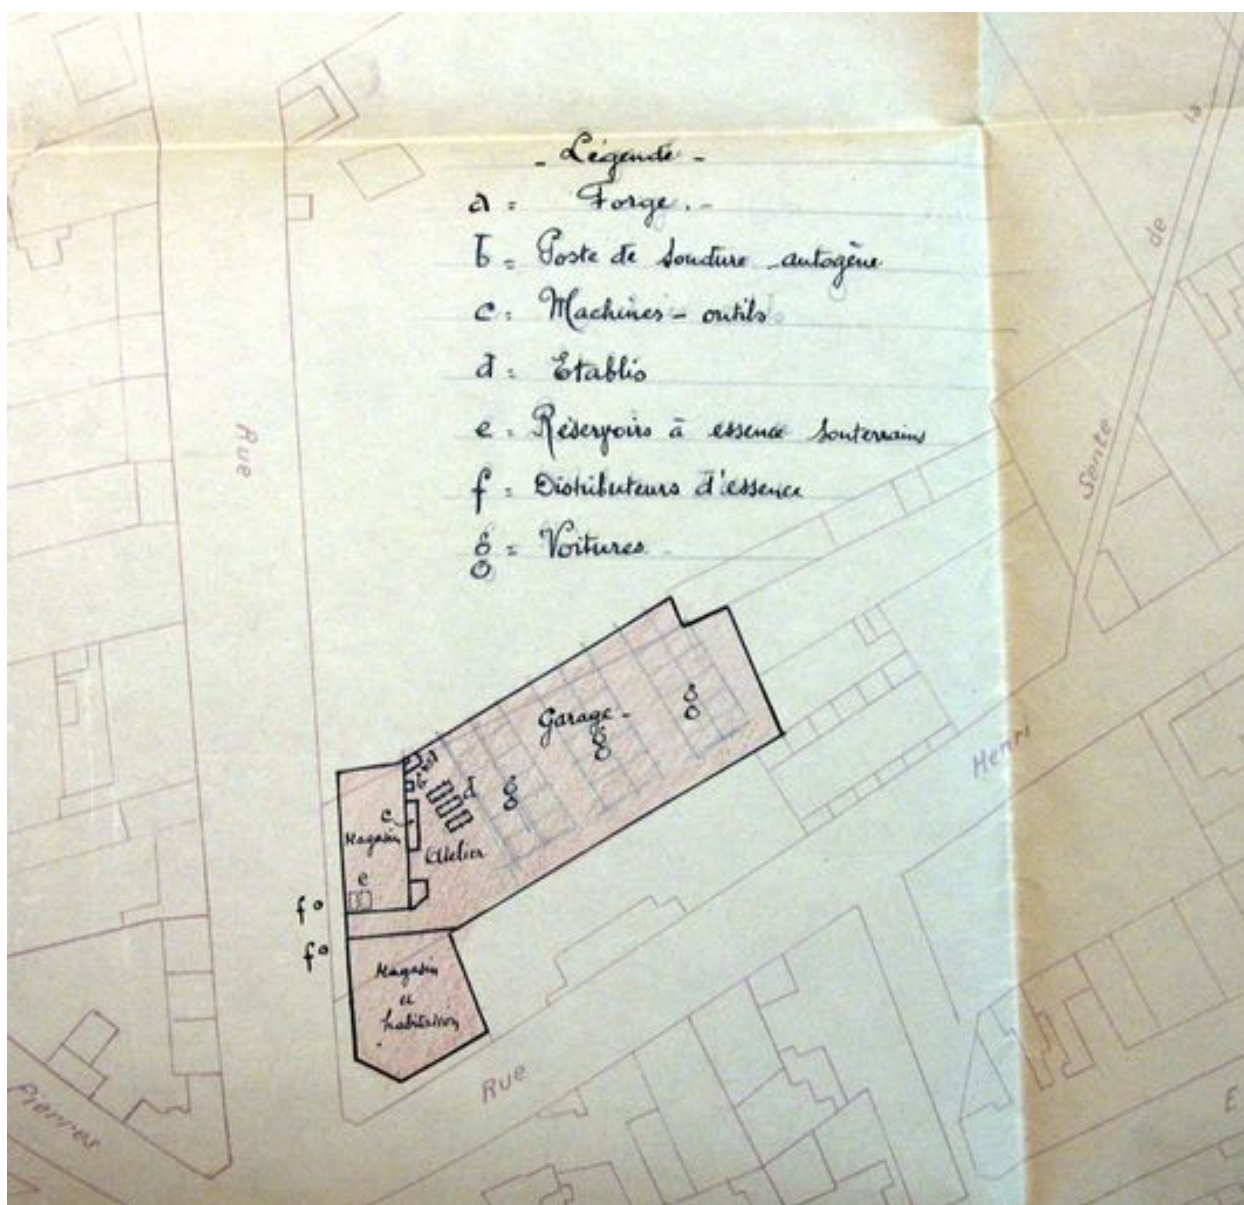 - Légende -
a = Forge. -
b = Poste de soudure autogène
c = Machines - outils
d = Etablis
e = Réservoirs à essence souterrains
f = Distributeurs d'essence
8 = Voitures
o
Rue
Sente
de
la
Garage -
8
o
8
o
8
o
a
b
d
c
Magasin
Atelier
e
f
f
Magasin
et
habitation
Rue
Henri
Pierres
E